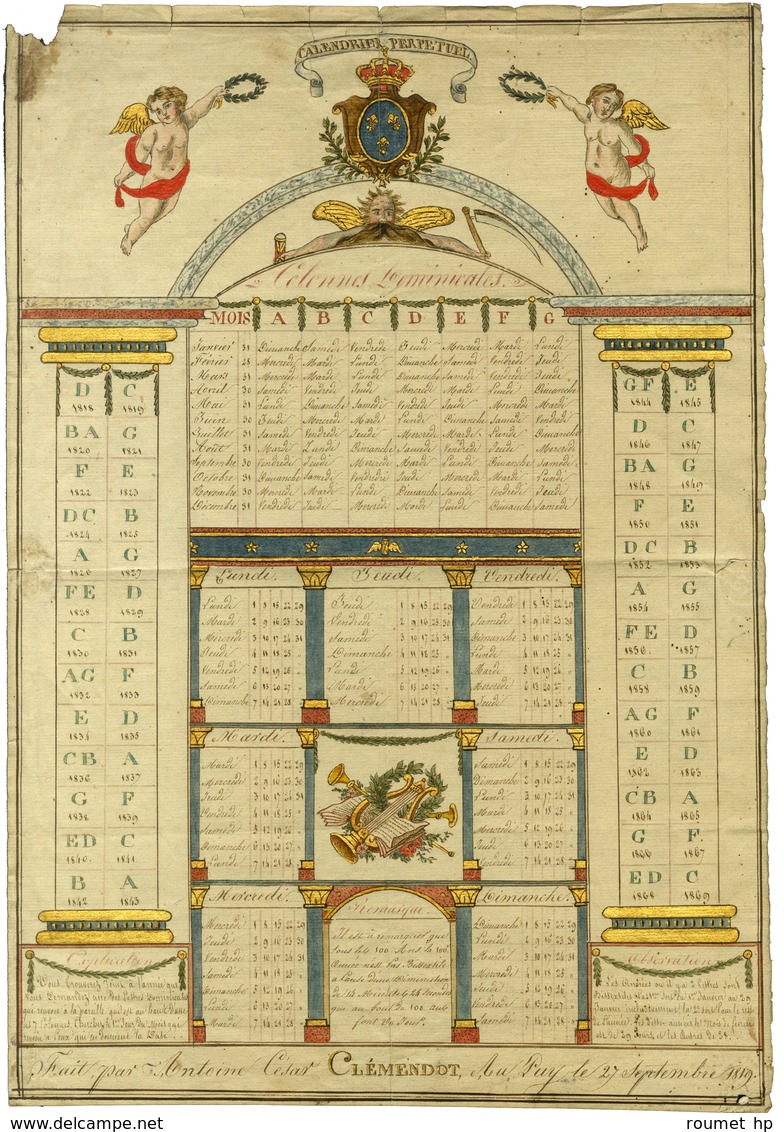 CALENDRIER PERPETUEL.
Colonnes Dominicales.
MOIS A B C D E F G
Janvier 31 Dimanche Samedi Vendredi Jeudi Mercredi Mardi Lundi
Février 28 Mercredi Mardi Lundi Dimanche Samedi Vendredi Jeudi
Mars 31 Mercredi Mardi Lundi Dimanche Samedi Vendredi Jeudi
Avril 30 Samedi Vendredi Jeudi Mercredi Mardi Lundi Dimanche
Mai 31 Lundi Dimanche Samedi Vendredi Jeudi Mercredi Mardi
Juin 30 Jeudi Mercredi Mardi Lundi Dimanche Samedi Vendredi
Juillet 31 Samedi Vendredi Jeudi Mercredi Mardi Lundi Dimanche
Août 31 Mardi Lundi Dimanche Samedi Vendredi Jeudi Mercredi
Septembre 30 Vendredi Jeudi Mercredi Mardi Lundi Dimanche Samedi
Octobre 31 Dimanche Samedi Vendredi Jeudi Mercredi Mardi Lundi
Novembre 30 Mercredi Mardi Lundi Dimanche Samedi Vendredi Jeudi
Décembre 31 Vendredi Jeudi Mercredi Mardi Lundi Dimanche Samedi
D C
1818 1819
BA G
1820 1821
F E
1822 1823
DC B
1824 1825
A G
1826 1827
FE D
1828 1829
C B
1830 1831
AG F
1832 1833
E D
1834 1835
CB A
1836 1837
G F
1838 1839
ED C
1840 1841
B A
1842 1843
GF E
1844 1845
D C
1846 1847
BA G
1848 1849
F E
1850 1851
DC B
1852 1853
A G
1854 1855
FE D
1856 1857
C B
1858 1859
AG F
1860 1861
E D
1862 1863
CB A
1864 1865
G F
1866 1867
ED C
1868 1869
Lundi.
Lundi 1 8 15 22 29
Mardi 2 9 16 23 30
Mercredi 3 10 17 24 31
Jeudi 4 11 18 25
Vendredi 5 12 19 26
Samedi 6 13 20 27
Dimanche 7 14 21 28
Jeudi.
Jeudi 1 8 15 22 29
Vendredi 2 9 16 23 30
Samedi 3 10 17 24 31
Dimanche 4 11 18 25
Lundi 5 12 19 26
Mardi 6 13 20 27
Mercredi 7 14 21 28
Vendredi.
Vendredi 1 8 15 22 29
Samedi 2 9 16 23 30
Dimanche 3 10 17 24 31
Lundi 4 11 18 25
Mardi 5 12 19 26
Mercredi 6 13 20 27
Jeudi 7 14 21 28
Mardi.
Mardi 1 8 15 22 29
Mercredi 2 9 16 23 30
Jeudi 3 10 17 24 31
Vendredi 4 11 18 25
Samedi 5 12 19 26
Dimanche 6 13 20 27
Lundi 7 14 21 28
Samedi.
Samedi 1 8 15 22 29
Dimanche 2 9 16 23 30
Lundi 3 10 17 24 31
Mardi 4 11 18 25
Mercredi 5 12 19 26
Jeudi 6 13 20 27
Vendredi 7 14 21 28
Mercredi.
Mercredi 1 8 15 22 29
Jeudi 2 9 16 23 30
Vendredi 3 10 17 24 31
Samedi 4 11 18 25
Dimanche 5 12 19 26
Lundi 6 13 20 27
Mardi 7 14 21 28
Remarque
Il est à remarquer que
tous les 100 Ans la 100e
Année n'est pas Bissextile
à cause d'une diminution
de
au bout de 100 ans
font un Jour.
Dimanche.
Dimanche 1 8 15 22 29
Lundi 2 9 16 23 30
Mardi 3 10 17 24 31
Mercredi 4 11 18 25
Jeudi 5 12 19 26
Vendredi 6 13 20 27
Samedi 7 14 21 28
Explication
Vous trouverez sous l'année que
vous Demandez une des lettres Dominicales
qui renvoie à la pareille qui est au haut d'une
des 7 Colonnes Cherchez le 1er Jour du Mois qui
Observation
Les Années où il y a 2 lettres sont
Bissextiles la 1re sert du 1er Janvier au 29
Février inclusivement, la 2e sert pour le reste
de l'année
est de 29 Jours et les Autres de 28.
Fait par Antoine César CLÉMENDOT, Au Puy le 27 Septembre 1819.
roumet hp roumet hp